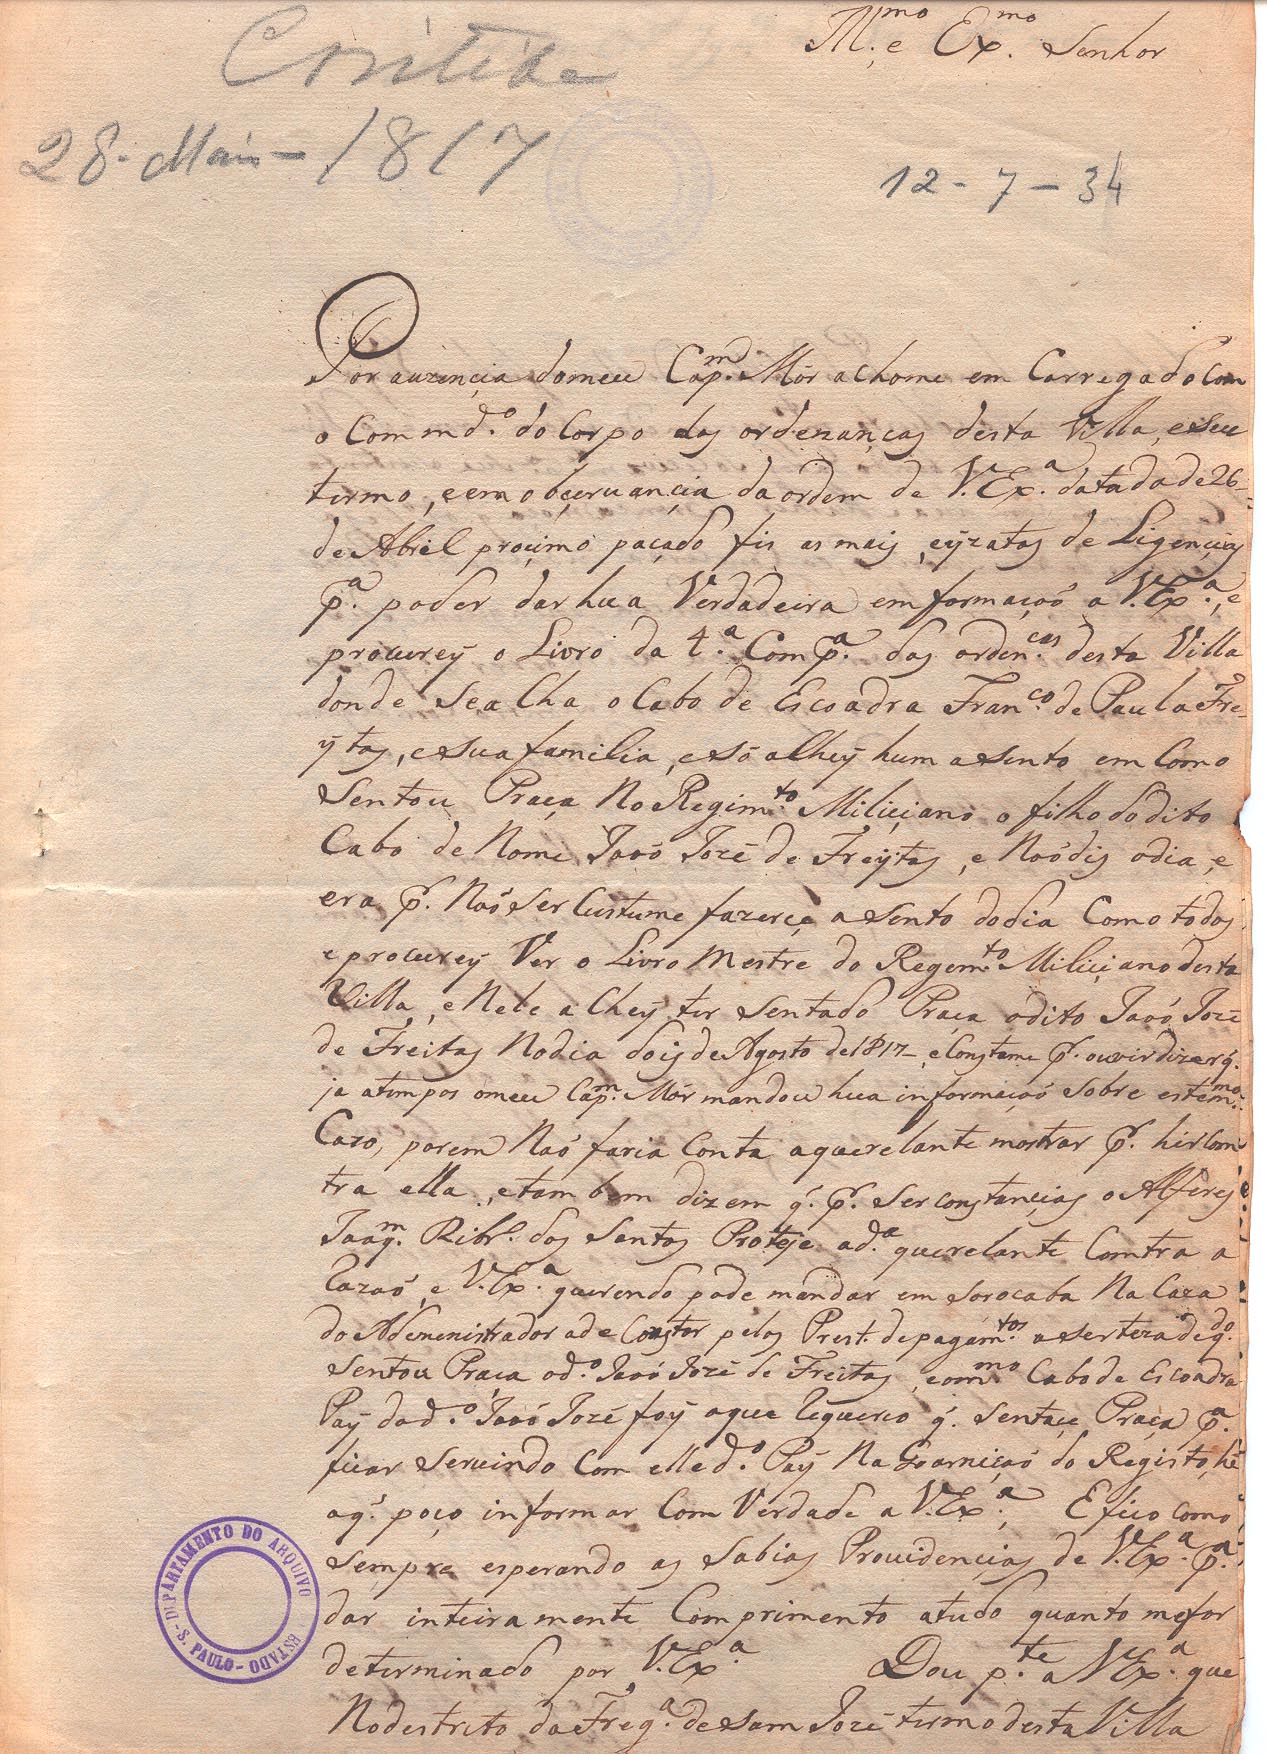 Coritiba
28 - Maio - 1817
Ill.mo e Ex.mo Senhor
12 - 7 - 34
Por auzençia domeu Cap.m Mór achome em Carregado Com
o Commd.o do Corpo das ordenanças desta Villa, eseu
termo, eem obçeruançia da ordem de V. Ex.a datada de 26
de Abril proçimo paçado fis as mais eyzatas de Ligençias
p.a poder dar hua Verdadeira emformaçaõ a V. Ex.a, e
procurey o Livro da 4.a Comp.a das orden.cas desta Villa
donde Sea Cha o Cabo de Escoadra Fran.co de Paula Fre-
ytas, esua familia, esó alhey hum asento em Como
Sentou Praça No Regim.to Miliçiano o filho dodito
Cabo de Nome Joaõ Jozé de Freytas, e Naõ dis odia, e
era p.r Naõ Ser Custume fazerçe asento dodia Como todos
e procurey Ver o Livro Mestre do Regem.to Miliçiano desta
Villa, e Nele a Chey ter Sentado Praça odito Joaõ Jozé
de Freitas Nodia dois de Agosto de 1817 e Constame p.r ouvir dizer q.
ja atempos omeu Cap.m Mór mandou hua informaçaõ Sobre este m.mo
Cazo, porem Naõ faria Conta aquerelante mostrar p.r hir Com
tra ella, etambem dizem q. p.r Serconstançias o Alferes
Joaq.m Ribr.o dos Santos Proteje ad.a querelante Comtra a
Razaõ, e V. Ex.a querendo pode mandar em Sorocaba Na Caza
doAdemenistrador ade Constar pelos Prest. de pagam.tos aserteza de q.do
Sentou Praca od.o Joaõ Jozé de Freitas, eom.mo Cabo de Escoadra
Pay dod.o Joaõ Jozé foy aque Requereo q. Sentaçe Praça p.a
ficar Seruindo Com elle d.o Pay Na Goarniçaõ do Registo, hé
aq. poço informar Com Verdade a V. Ex.a, Efico como
Sempre esperando as Sabias Prouidençias de V. Ex.a p.a
dar inteiramente Comprimento atudo quanto mefor
determinado por V. Ex.a Dou p.te a V. Ex.a que
Nodestrito da Freg.a de Sam Jozé termo desta Villa
DEPARTAMENTO DO ARQUIVO
ESTADO
- S. PAULO -